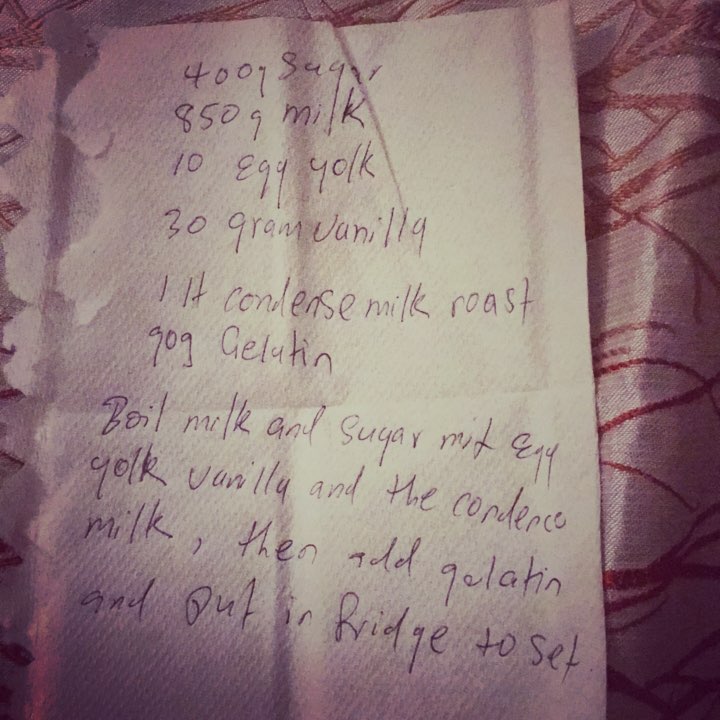 400g Sugar
850g milk
10 Egg yolk
30 gram vanilla
1 lt condense milk roast
90g Gelatin
Boil milk and sugar mix Egg
yolk vanilla and the condence
milk, then add gelatin
and put in fridge to set